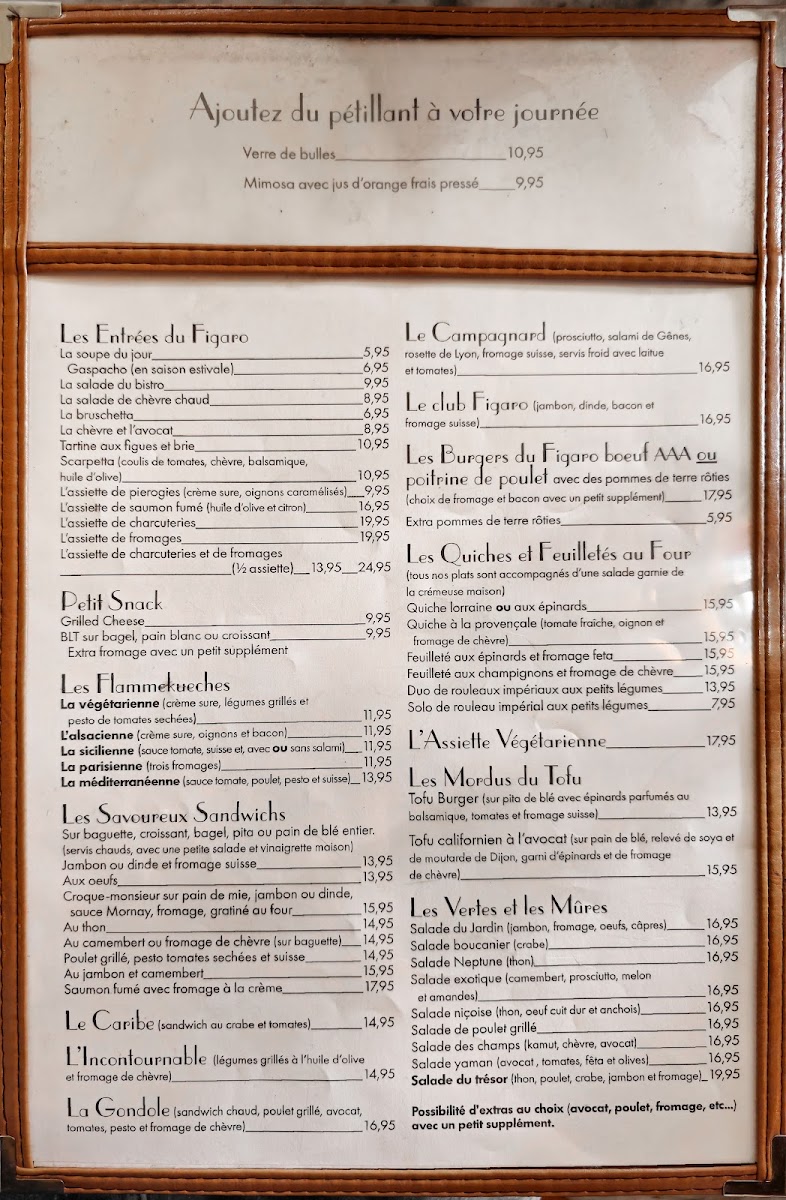 Ajoutez du pétillant à votre journée
Verre de bulles 10,95
Mimosa avec jus d'orange frais pressé 9,95
Les Entrées du Figaro
La soupe du jour 5,95
Gaspacho (en saison estivale) 6,95
La salade du bistro 9,95
La salade de chèvre chaud 8,95
La bruschetta 6,95
La chèvre et l'avocat 8,95
Tartine aux figues et brie 10,95
Scarpetta (coulis de tomates, chèvre, balsamique,
huile d'olive) 10,95
L'assiette de pierogies (crème sure, oignons caramélisés) 9,95
L'assiette de saumon fumé (huile d'olive et citron) 16,95
L'assiette de charcuteries 19,95
L'assiette de fromages 19,95
L'assiette de charcuteries et de fromages
(½ assiette) 13,95 24,95
Petit Snack
Grilled Cheese 9,95
BLT sur bagel, pain blanc ou croissant 9,95
Extra fromage avec un petit supplément
Les Flammekueches
La végétarienne (crème sure, légumes grillés et
pesto de tomates sechées) 11,95
L'alsacienne (crème sure, oignons et bacon) 11,95
La sicilienne (sauce tomate, suisse et, avec ou sans salami) 11,95
La parisienne (trois fromages) 11,95
La méditerranéenne (sauce tomate, poulet, pesto et suisse) 13,95
Les Savoureux Sandwichs
Sur baguette, croissant, bagel, pita ou pain de blé entier.
(servis chauds, avec une petite salade et vinaigrette maison)
Jambon ou dinde et fromage suisse 13,95
Aux oeufs 13,95
Croque-monsieur sur pain de mie, jambon ou dinde,
sauce Mornay, fromage, gratiné au four 15,95
Au thon 14,95
Au camembert ou fromage de chèvre (sur baguette) 14,95
Poulet grillé, pesto tomates sechées et suisse 14,95
Au jambon et camembert 15,95
Saumon fumé avec fromage à la crème 17,95
Le Caribe (sandwich au crabe et tomates) 14,95
L'Incontournable (légumes grillés à l'huile d'olive
et fromage de chèvre) 14,95
La Gondole (sandwich chaud, poulet grillé, avocat,
tomates, pesto et fromage de chèvre) 16,95
Le Campagnard (prosciutto, salami de Gênes,
rosette de Lyon, fromage suisse, servis froid avec laitue
et tomates) 16,95
Le club Figaro (jambon, dinde, bacon et
fromage suisse) 16,95
Les Burgers du Figaro boeuf AAA ou
poitrine de poulet avec des pommes de terre rôties
(choix de fromage et bacon avec un petit supplément) 17,95
Extra pommes de terre rôties 5,95
Les Quiches et Feuilletés au Four
(tous nos plats sont accompagnés d'une salade garnie de
la crémeuse maison)
Quiche lorraine ou aux épinards 15,95
Quiche à la provençale (tomate fraîche, oignon et
fromage de chèvre) 15,95
Feuilleté aux épinards et fromage feta 15,95
Feuilleté aux champignons et fromage de chèvre 15,95
Duo de rouleaux impériaux aux petits légumes 13,95
Solo de rouleau impérial aux petits légumes 7,95
L'Assiette Végétarienne 17,95
Les Mordus du Tofu
Tofu Burger (sur pita de blé avec épinards parfumés au
balsamique, tomates et fromage suisse) 13,95
Tofu californien à l'avocat (sur pain de blé, relevé de soya et
de moutarde de Dijon, garni d'épinards et de fromage
de chèvre) 15,95
Les Vertes et les Mûres
Salade du Jardin (jambon, fromage, oeufs, câpres) 16,95
Salade boucanier (crabe) 16,95
Salade Neptune (thon) 16,95
Salade exotique (camembert, prosciutto, melon
et amandes) 16,95
Salade niçoise (thon, oeuf cuit dur et anchois) 16,95
Salade de poulet grillé 16,95
Salade des champs (kamut, chèvre, avocat) 16,95
Salade yaman (avocat , tomates, fêta et olives) 16,95
Salade du trésor (thon, poulet, crabe, jambon et fromage) 19,95
Possibilité d'extras au choix (avocat, poulet, fromage, etc...)
avec un petit supplément.